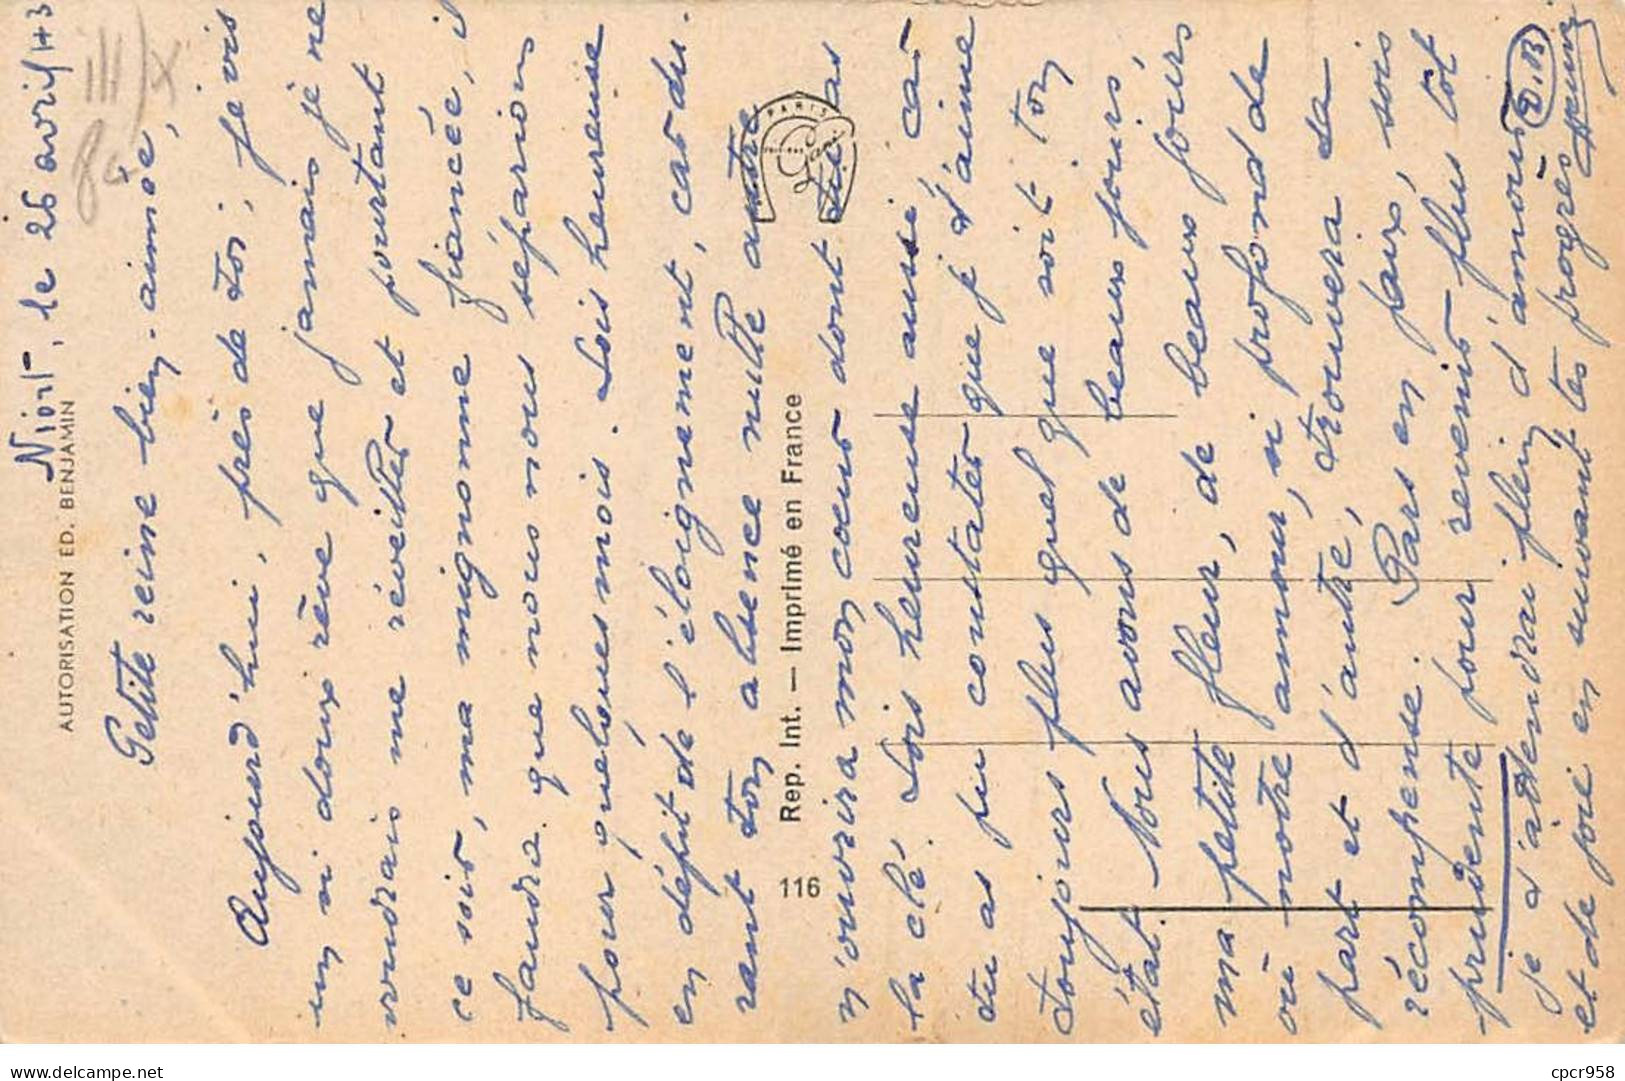 Niort, le 26 avril 43
AUTORISATION ED. BENJAMIN
Petite reine bien-aimée,
Aujourd'hui, près de toi, je vis
un si doux rêve que jamais je ne
voudrais me réveiller et pourtant
ce soir, ma mignonne fiancée, il
faudra que nous nous séparions
pour quelques mois. Sois heureuse
en dépit de l'éloignement, car du-
rant ton absence nulle autre
n'ouvrira mon coeur dont tu as
la clé. Sois heureuse aussi, car
tu as pu constater que je t'aime
toujours plus quel que soit ton
état. Nous avons de beaux jours,
ma petite fleur, de beaux jours
où notre amour, si profond de
part et d'autre, trouvera sa
récompense. Pars en paix, sois
prudente pour revenir plus tôt
je t'attendrai plein d'amour
et de joie en suivant tes progrès
D.B
PARIS
116 Rep. Int. — Imprimé en France
cpcr958